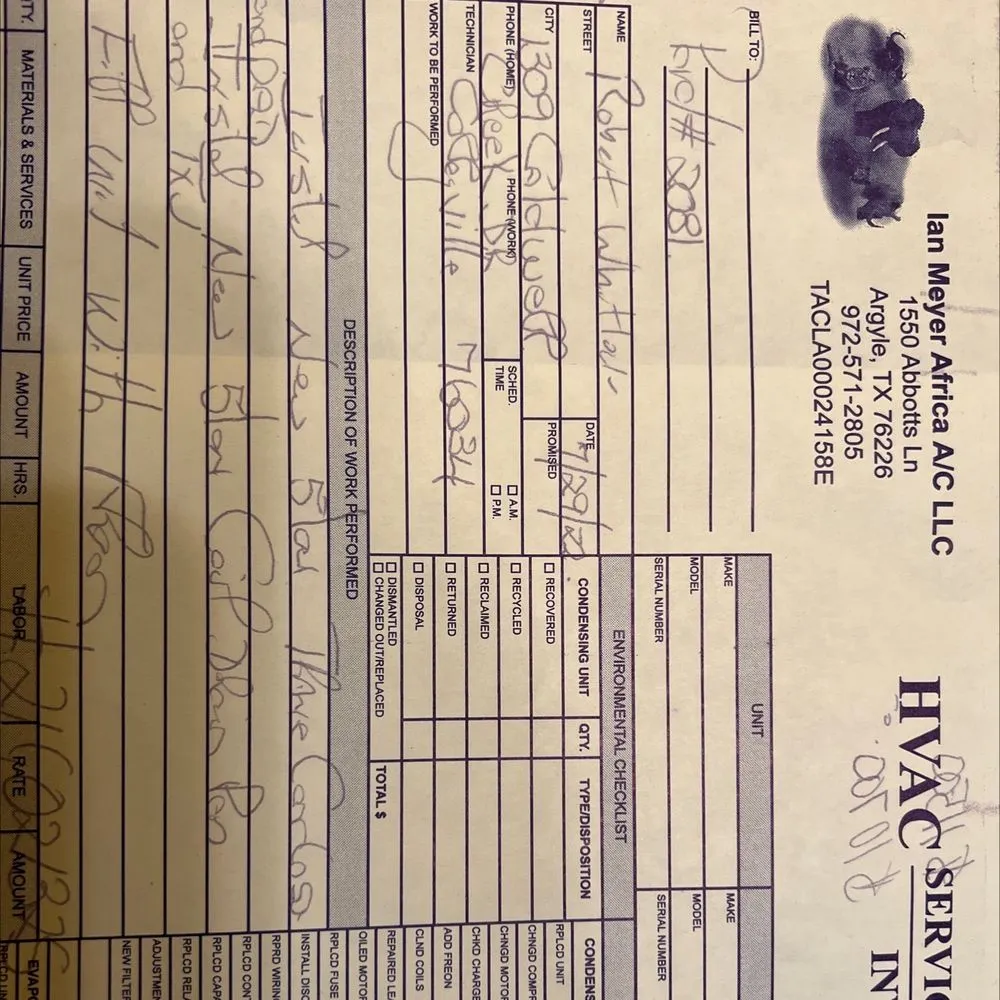 Ian Meyer Africa A/C LLC
1550 Abbotts Ln
Argyle, TX 76226
972-571-2805
TACLA00024158E
HVAC SERVI
IN
BILL TO:
# 2081
NAME Robert
STREET
1309 Caldwell
CITY
Creek DR
PHONE (HOME) PHONE (WORK)
Colleyville 76034
TECHNICIAN
WORK TO BE PERFORMED
DATE 7/29/22
PROMISED
SCHED. TIME
☐ A.M.
☐ P.M.
UNIT
MAKE
MODEL
SERIAL NUMBER
MAKE
MODEL
SERIAL NUMBER
ENVIRONMENTAL CHECKLIST
CONDENSING UNIT QTY. TYPE/DISPOSITION
☐ RECOVERED
☐ RECYCLED
☐ RECLAIMED
☐ RETURNED
☐ DISPOSAL
☐ DISMANTLED
☐ CHANGED OUT/REPLACED
TOTAL $
CONDENS
RPLCD UNIT
CHNGD COMP
CHNGD MOTO
CHKD CHARGE
ADD FREON
CLND COILS
REPAIRED LEA
OILED MOTOR
RPLCD FUSE
INSTALL DISC
RPRD WIRING
RPLCD CONT
RPLCD CAPA
RPLCD RELA
ADJUSTMEN
NEW FILTER
EVAPO
RPLCD UN
DESCRIPTION OF WORK PERFORMED
Install New 5ton
and PAD
Install New 5ton Coil Drain Pan
and TXV
Fill unit with
QTY. MATERIALS & SERVICES UNIT PRICE AMOUNT HRS. LABOR RATE AMOUNT